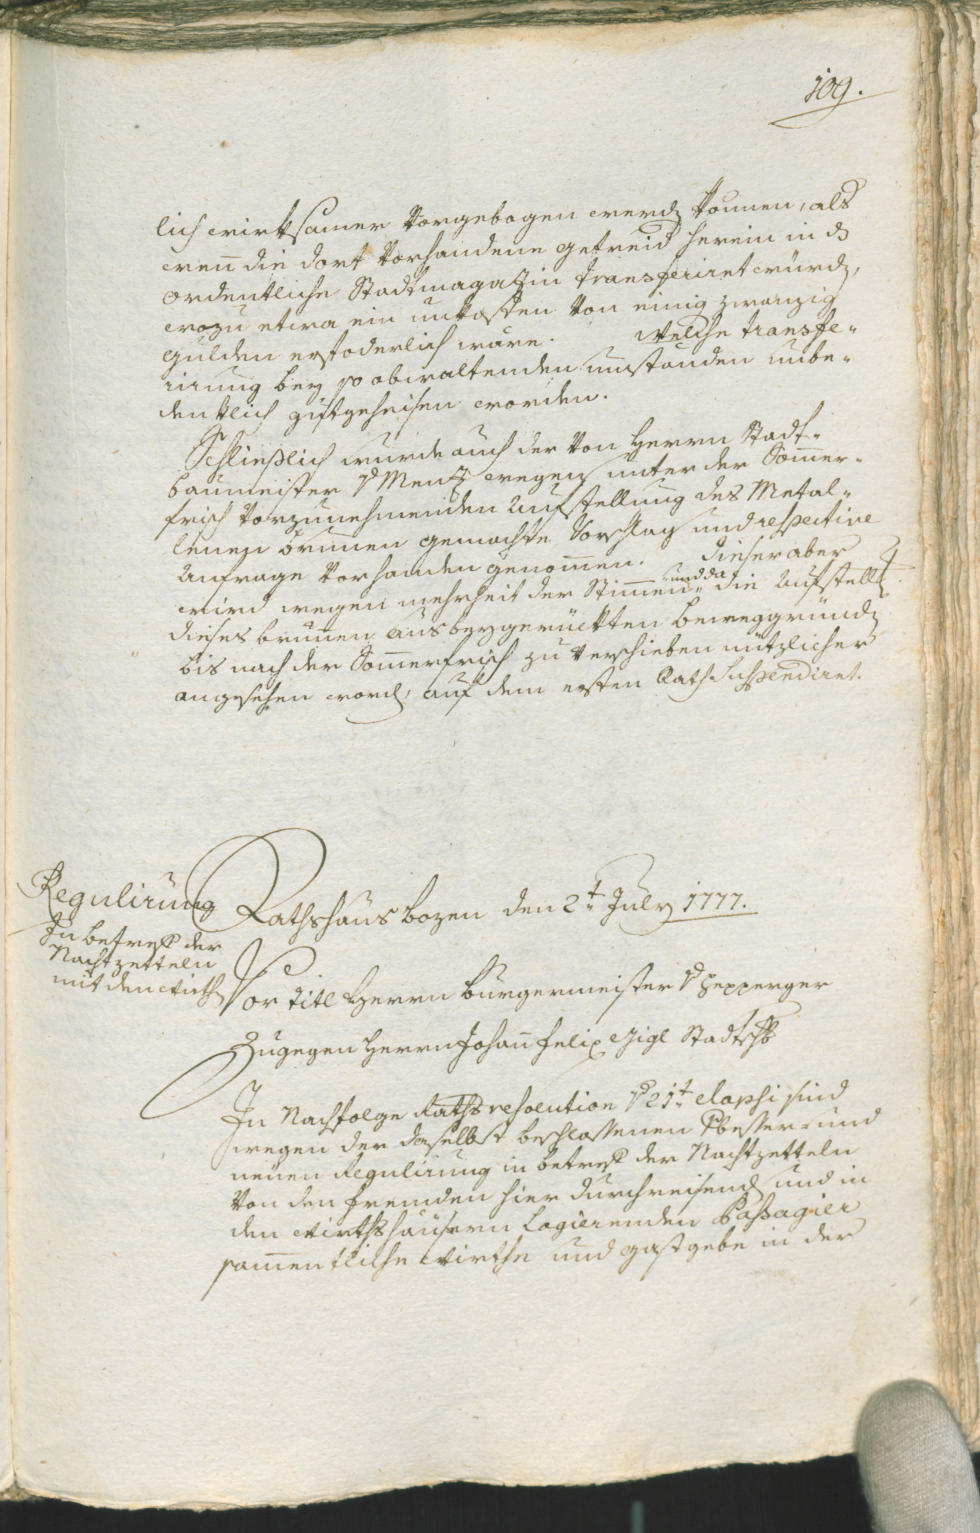 109.
lich wirksamer vorgebogen werdn können, als
wen̄ die dort vorhandene getreid herein in ds
ordentliche Stadtmagazin transferiret würdn,
wozu etwa ein unkosten von einig zwanzig
gulden erfoderlich wäre. Welche transfe-
rirung bey so obwaltenden umständen unbe-
denklich gutgeheisen worden.
Schließlich wurde auch der von Herrn Stadt-
baumeister v Menz wegen unter der Som̄er-
frisch vorzunehmenden Aufstellung des Metal-
lenen brunen gemachte Vorschlag und respective
Anfrage vorhanden genom̄en. Dieser aber
wird wegen mehrheit der Stim̄en, und da die Aufstellg
dieses brun̄en aus beygerückten beweggründn
bis nach der Som̄erfrisch zu verschieben nützlicher
angesehen wordn, auf dem ersten Rath suspendiret.
Regulirung
In betreff der
Nachtzetteln
mit den Wirthn
Rathshaus Bozen den 2t July 1777.
Vor titl Herrn Burgermeister v Hepperger
Zugegen Herrn Johan̄ Felix Gigl Stadtschb
In Nachfolge Raths resolution v 21t elapsi sind
wegen der daselbst beschlossenen besser- und
neuen Regulirung in betreff der Nachtzetteln
von den fremden hier durchreisendn und in
den wirthshäusern Logierenden Passagier
sam̄entliche Wirthe und gastgebe in der